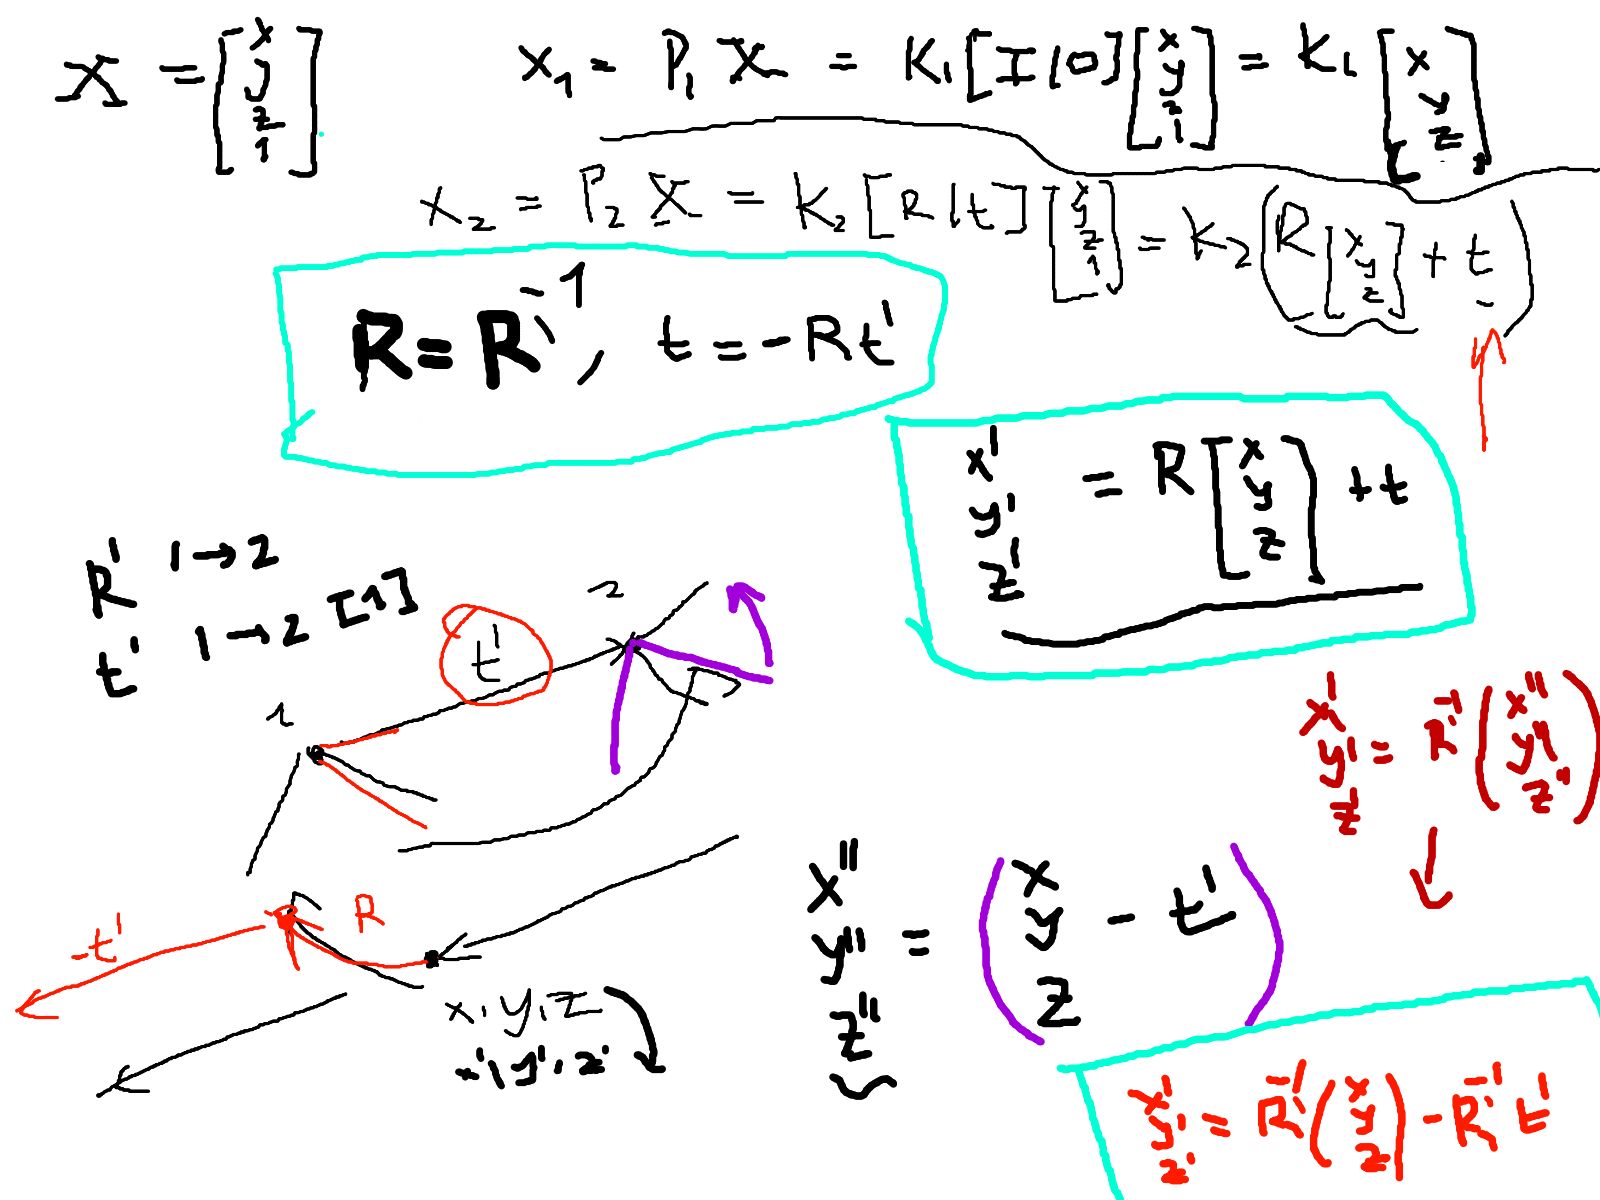 X = [x y z 1]
x₁ = P₁ X = K₁ [I | 0] [x y z 1] = K₁ [x y z]
x₂ = P₂ X = K₂ [R | t] [x y z 1] = K₂ (R [x y z] + t)
R = R'⁻¹, t = -Rt'
x' y' z' = R [x y z] + t
R' 1→2
t' 1→2 [1]
2
t'
1
x' y' z' = R'⁻¹ (x'' y'' z'')
R
-t'
x, y, z
x', y', z'
x'' y'' z'' = (x y z - t')
x' y' z' = R'⁻¹ (x y z) - R'⁻¹ t'